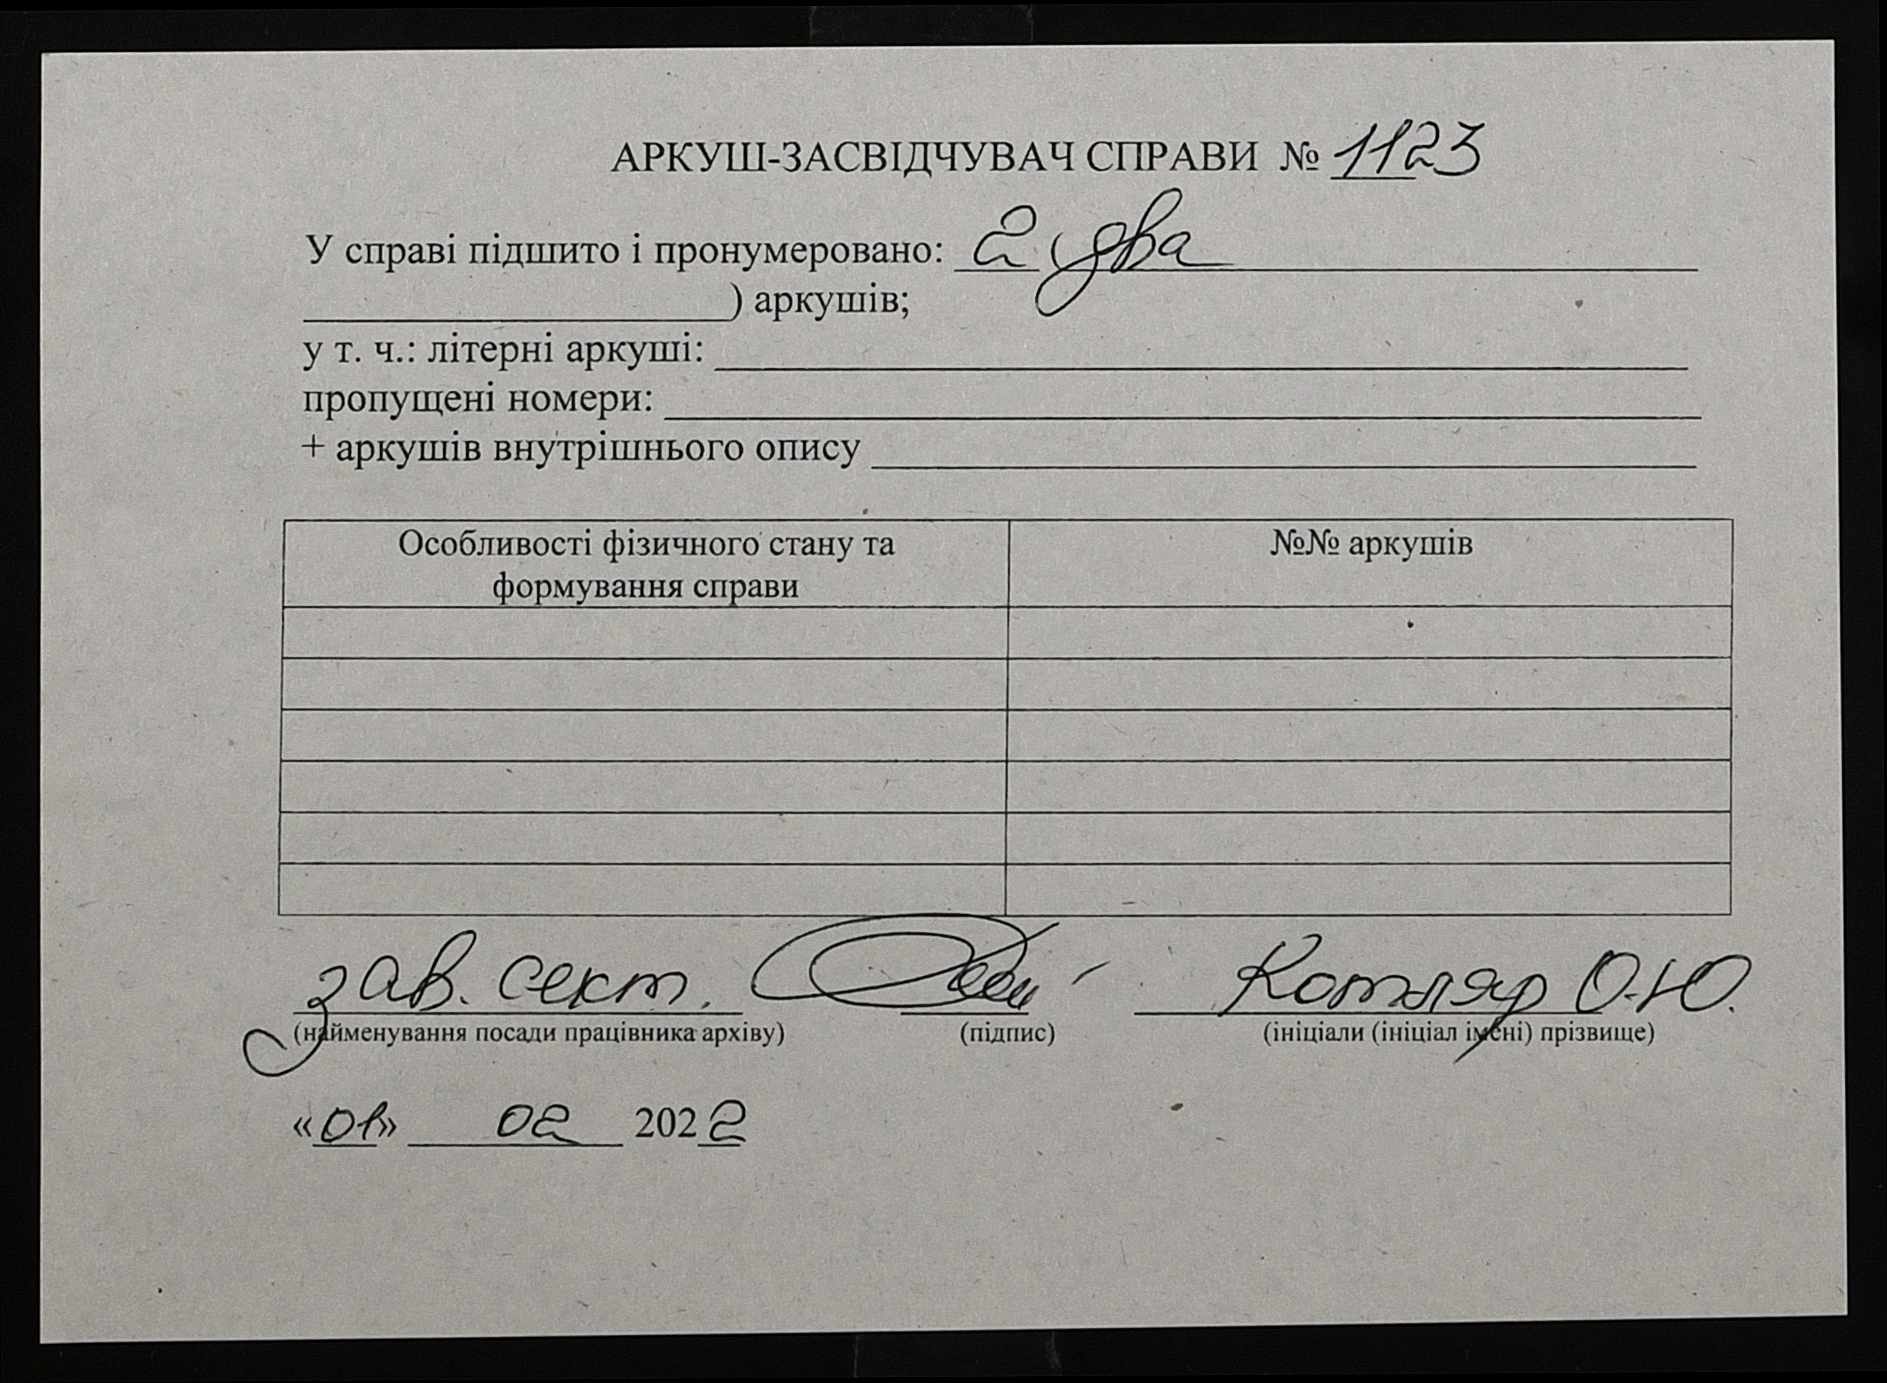 АРКУШ-ЗАСВІДЧУВАЧ СПРАВИ № 1123
У справі підшито і пронумеровано: 2 (два
) аркушів;
у т. ч.: літерні аркуші:
пропущені номери:
+ аркушів внутрішнього опису
Особливості фізичного стану та
формування справи
№№ аркушів
зав. сект. Котляр О.Ю.
(найменування посади працівника архіву) (підпис) (ініціали (ініціал імені) прізвище)
«01» 02 2022